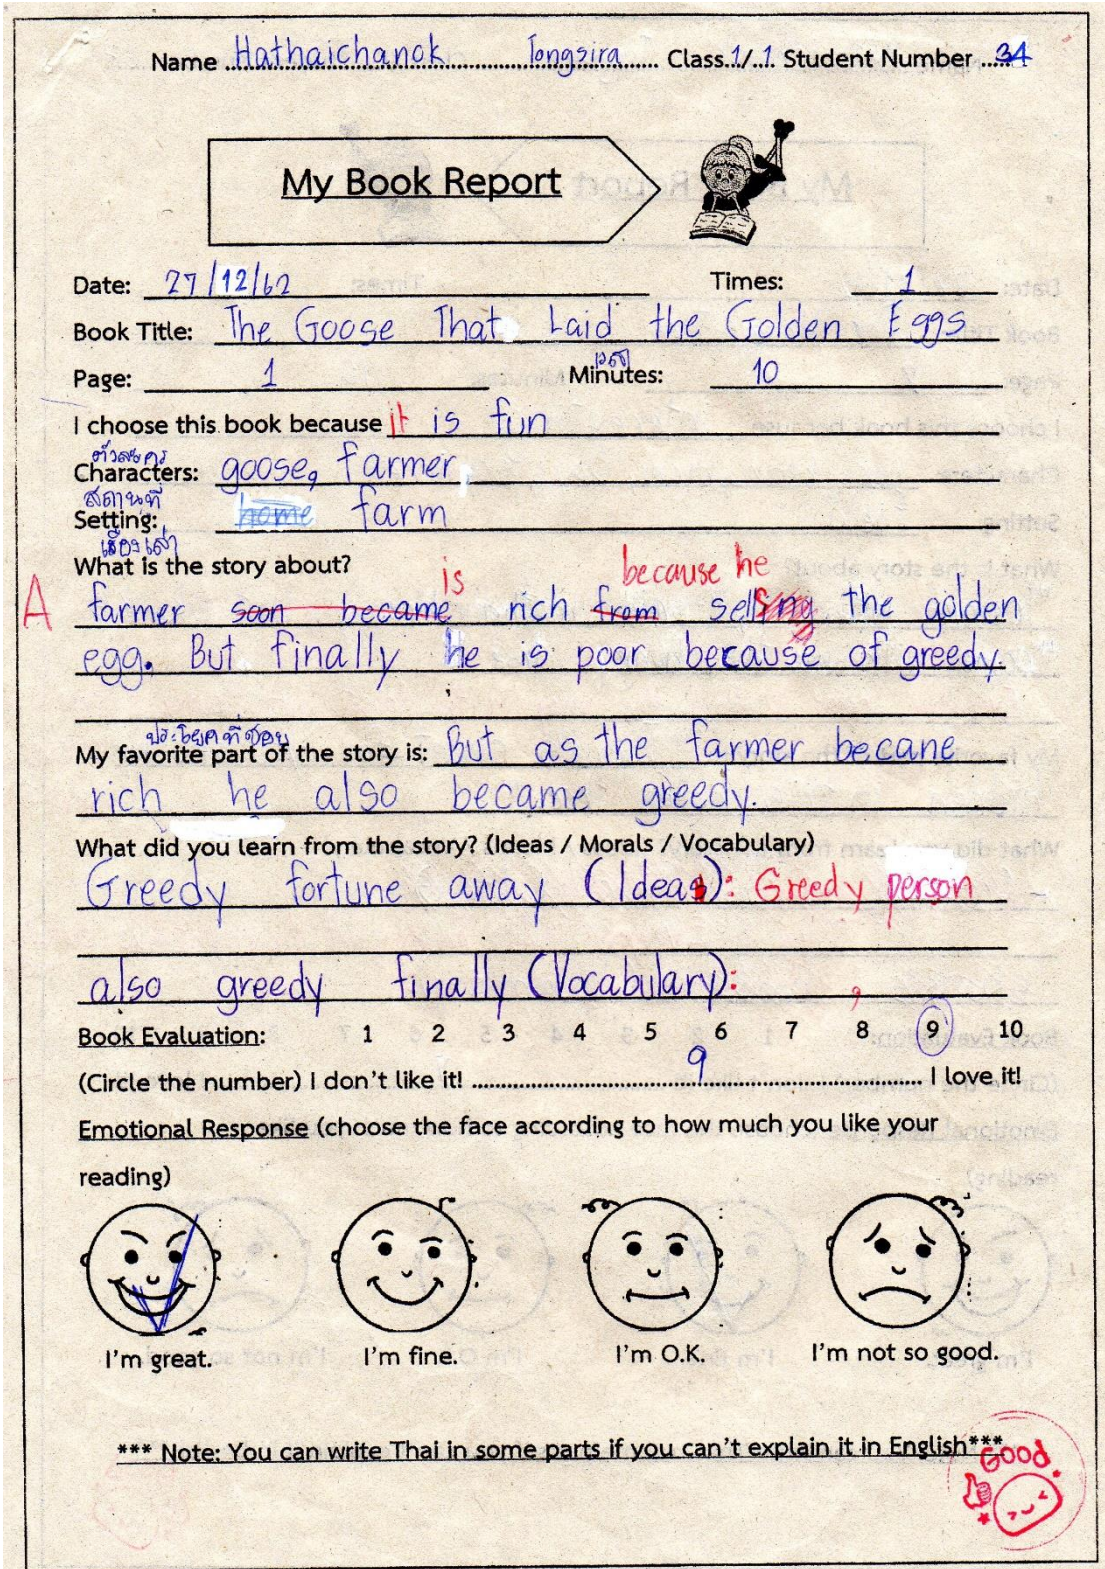 Name Hathaichanok Tongsira Class 1/1 Student Number 34
My Book Report
Date: 27/12/62 Times: 1
Book Title: The Goose That Laid the Golden Eggs
เวลา
Page: 1 Minutes: 10
I choose this book because it is fun
ตัวละคร
Characters: goose, farmer
สถานที่
Setting: home farm
เรื่องเล่า
What is the story about?
is because he
A farmer soon became rich from selling the golden
egg. But finally he is poor because of greedy.
ประโยคที่ชอบ
My favorite part of the story is: But as the farmer becane
rich he also became greedy.
What did you learn from the story? (Ideas / Morals / Vocabulary)
Greedy fortune away (Ideas): Greedy person
also greedy finally (Vocabulary):
Book Evaluation: 1 2 3 4 5 6 7 8 9 10
9
(Circle the number) I don't like it! I love it!
Emotional Response (choose the face according to how much you like your
reading)
I'm great. I'm fine. I'm O.K. I'm not so good.
*** Note: You can write Thai in some parts if you can't explain it in English***
Good